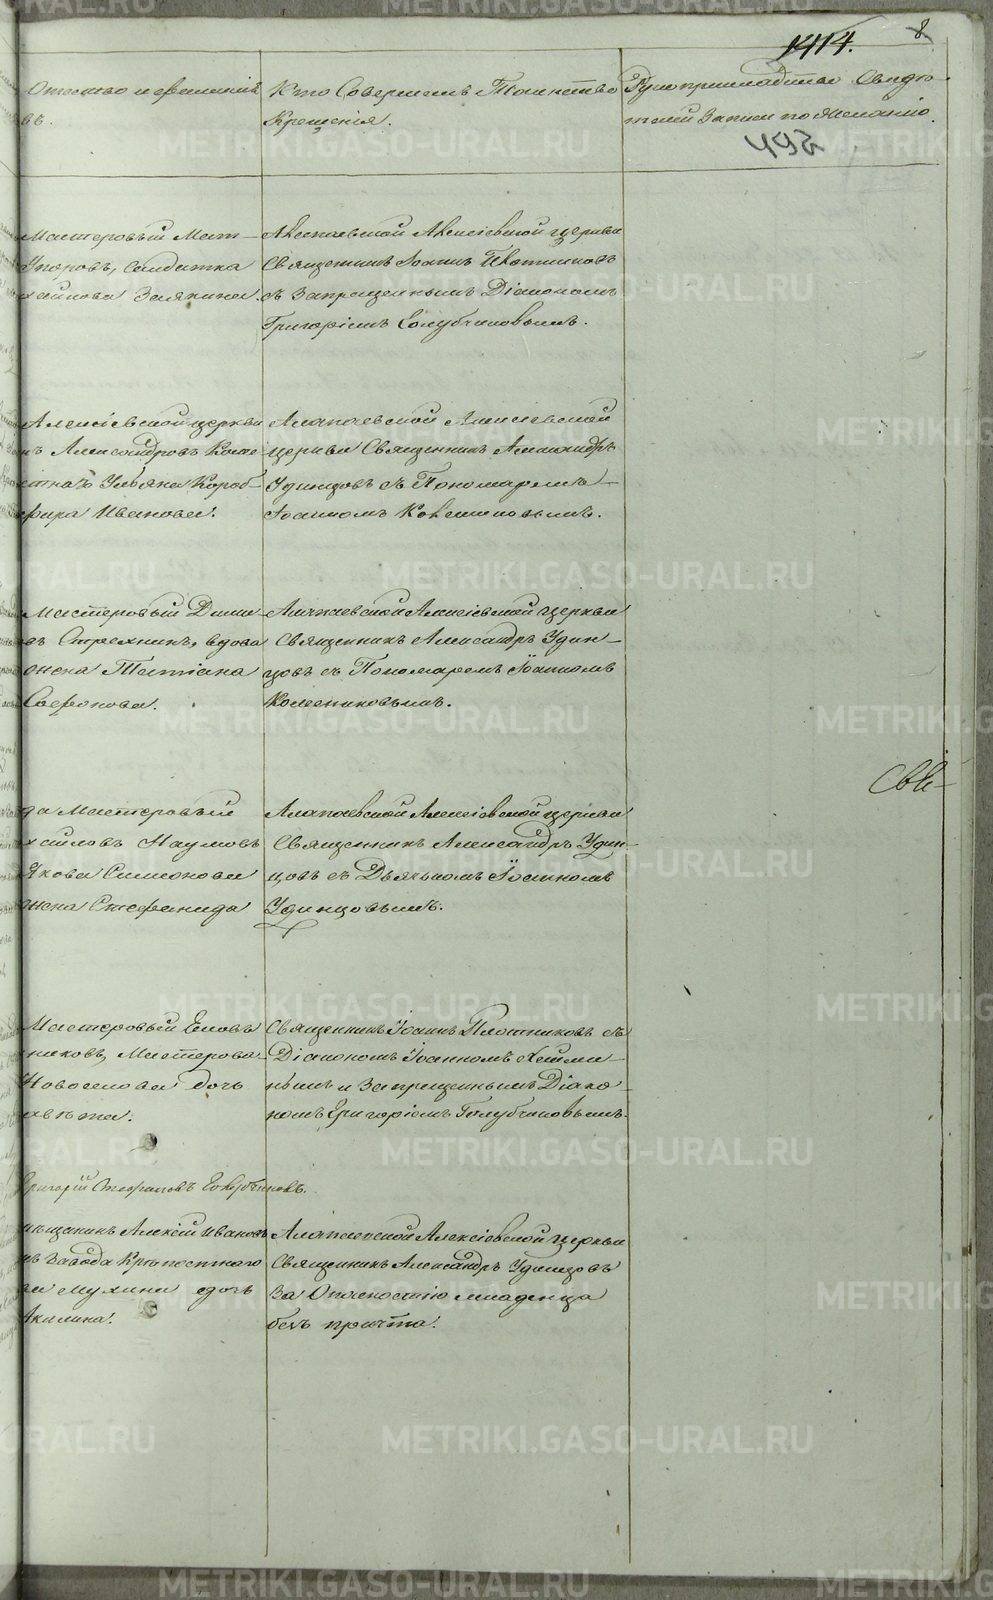 1414. 8
Отчество и фамилія
въ.
Кто Совершалъ Таинство
Крещенія.
Рукоприкладство Свидѣ-
телей Записи по Желанію.
495
Мастеровый Мат-
Егоровъ, Солдатка
хайлова Залякина
Алапаевской Алексіевской церкви
Священникъ Іоаннъ Плотниковъ
съ Запрещеннымъ Діакономъ
Григоріемъ Голубчиковымъ.
Алексіевской церкви
Александровъ
Ульяна Короб-
фира Иванова.
Алапаевской Алексіевской
церкви Священникъ Александръ
Удинцовъ съ Пономаремъ
Іоанномъ
Мастеровый Дими-
въ Стрежнинъ, вдова
онска Татіана
Сафонова.
Алапаевской Алексіевской церкви
Священникъ Александръ Удин-
цовъ съ Пономаремъ Іоанномъ
да Мастеровый
хайловъ Наумовъ
Якова Симонова
жена Стефанида
Алапаевской Алексіевской церкви
Священникъ Александръ Удин-
цовъ съ Дьячкомъ Іоанномъ
Удинцовымъ.
Мастеровый
никовъ, Мастерова-
Новоселова дочь
авѣта.
Священникъ Іоаннъ Плотниковъ съ
Діакономъ Іоанномъ
нымъ и Запрещеннымъ Діако-
номъ Григоріемъ Голубчиковымъ.
Григорій Стефановъ Голубчиковъ.
мѣщанинъ Алексій Ивановъ
Завода Крѣпостнаго
Мухина дочь
Акилина.
Алапаевской Алексіевской церкви
Священникъ Александръ Удинцовъ
За Опасностію младенца
безъ причта.
METRIKI.GASO-URAL.RU